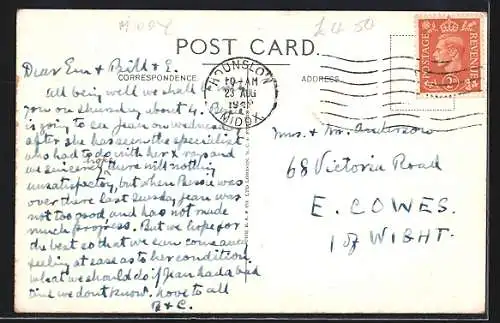 M084
£4.50
POST CARD.
CORRESPONDENCE.
ADDRESS.
HOUNSLOW
10-AM
23 AUG
MIDDX
POSTAGE
REVENUE
Dear Em & Bill & E.
all being well we shall
you on thursday about 4.
is going to see Jean on wednesday
after she has seen the specialist
who had to do with her x rays and
we sincerely hope there will nothing
unsatisfactory, but when Bessie was
over there last Sunday, Jean was
not too good and has not made
much progress. But we hope for
the best so that we can come
feeling at ease as to her condition.
what we should do if Jean had a bad
time we dont know. Love to all
B & C.
Mrs. & Mr. Anderson
68 Victoria Road
E. COWES.
I of WIGHT.